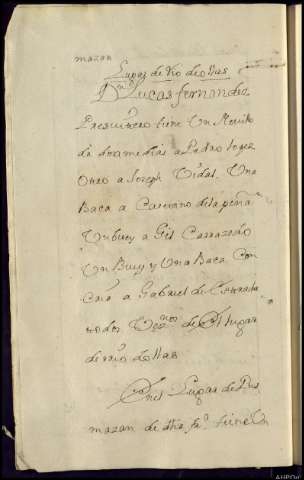 mazan
Lugar de Rio de ollas
Dn Lucas fernandez
Presvitero tiene Un Novillo
de dos medias a Pedro lopez
Otro a Joseph Vidal, Una
Baca a Caietano de la peña
Un buey a Gil Carrazedo
Un Buey y Una Baca Con
Cria a Gabriel de Estrada
todos Vezos de el lugar
de rio de ollas
En el Lugar de Bus
mazan de dha fa tiene Un
AHPOu